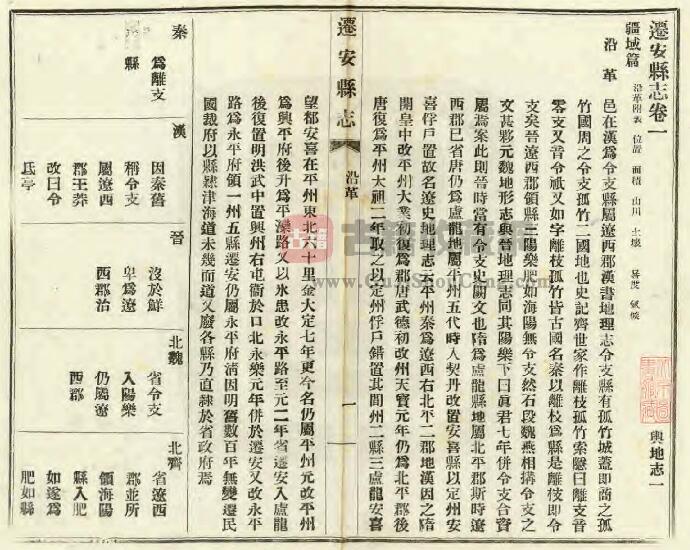 遷安縣志卷一
輿地志一
疆域篇
沿革附表 位置 面積 山川 土壤 晷度 氣候
沿革
邑在漢爲令支縣屬遼西郡漢書地理志令支縣有孤竹城蓋即商之孤
竹國周之令支孤竹二國地也史記齊世家作離枝孤竹索隱曰離支音
零支又音令祇又如字離枝孤竹皆古國名秦以離枝爲縣是離枝即令
支矣晉遼西郡領縣三陽樂肥如海陽無令支然石段魏燕相搆令支之
文甚夥元魏地形志與晉地理志同其陽樂下曰眞君七年併令支合資
屬焉案此則晉時當有令支史闕文也隋爲盧龍縣地屬北平郡斯時遼
西郡已省唐仍爲盧龍地屬平州五代時入契丹改置安喜縣以定州安
喜俘戶置故名遼史地理志云平州秦爲遼西右北平二郡地漢因之隋
開皇中改平州大業初復爲郡唐武德初改州天寶元年仍爲北平郡後
唐復爲平州太祖二年取之以定州俘戶錯置其間州二縣三盧龍安喜
遷安縣志
沿革
一
望都安喜在平州東北六十里金大定七年更今名仍屬平州元改平州
爲興平府後升爲平灤路又以水患改永平路至元二年省遷安入盧龍
後復置明洪武中置興州右屯衞於口北永樂元年併於遷安又改永平
路爲永平府領一州五縣遷安仍屬永平府清因明舊數百年無變遷民
國裁府以縣隸津海道未幾而道又廢各縣乃直隸於省政府焉
秦
爲離支
縣
漢
因秦舊
稱令支
屬遼西
郡王莽
改曰令
氐亭
晉
沒於鮮
卑爲遼
西郡治
北魏
省令支
入陽樂
仍屬遼
西郡
北齊
省遼西
郡並所
領海陽
縣入肥
如遂爲
肥如縣